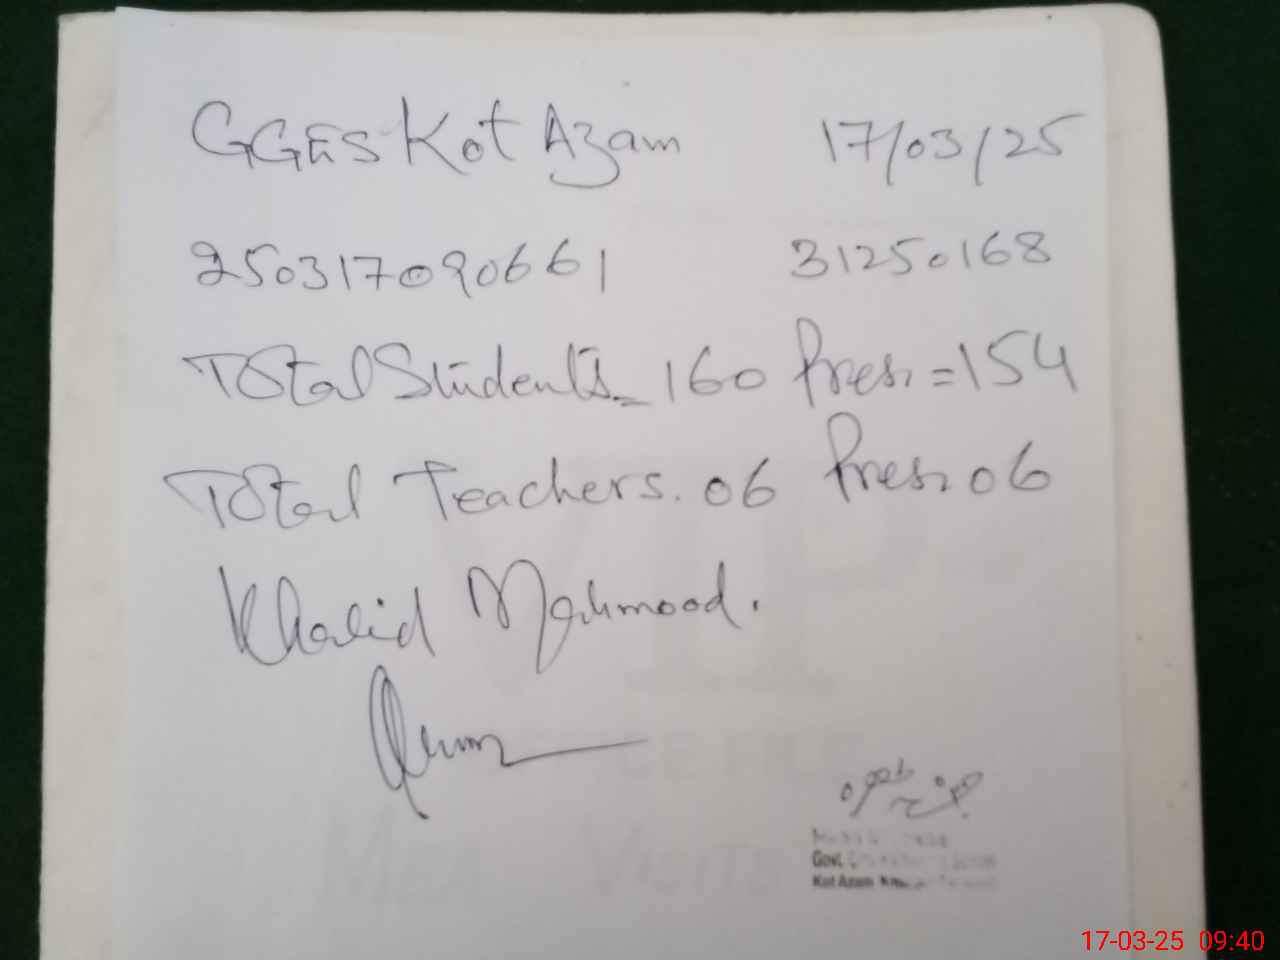 GGES Kot Azam 17/03/25
250317090661 31250168
Total Students = 160 Pres: = 154
Total Teachers. 06 Pres: 06
Khalid Mahmood.
Govt.
Kot Azam
17-03-25 09:40